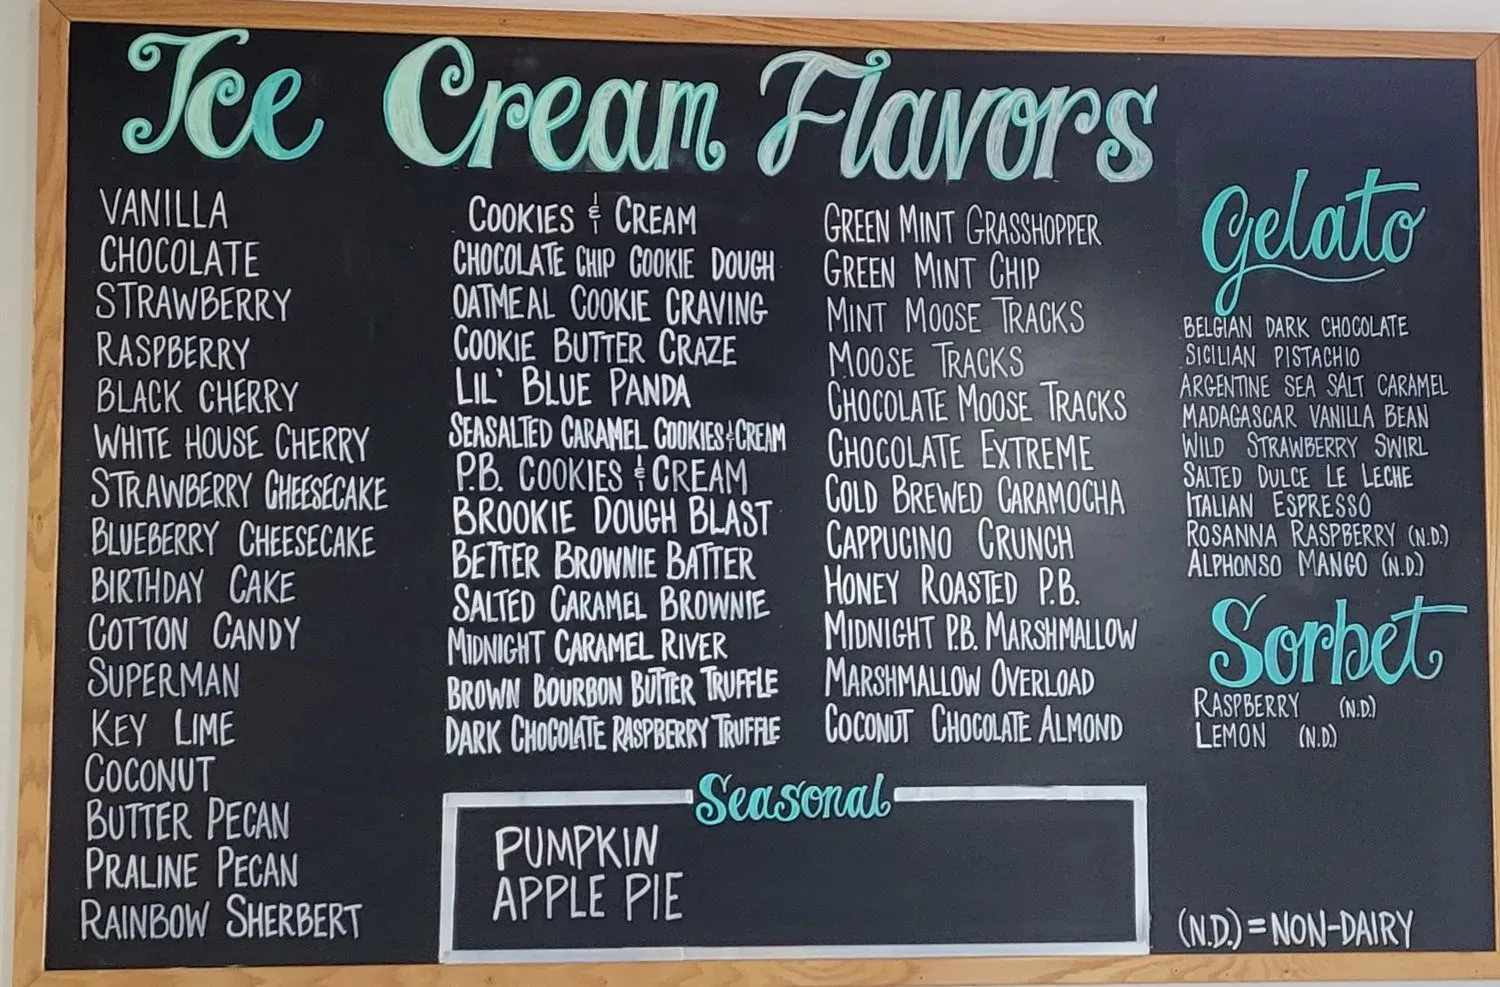 Ice Cream Flavors
VANILLA
CHOCOLATE
STRAWBERRY
RASPBERRY
BLACK CHERRY
WHITE HOUSE CHERRY
STRAWBERRY CHEESECAKE
BLUEBERRY CHEESECAKE
BIRTHDAY CAKE
COTTON CANDY
SUPERMAN
KEY LIME
COCONUT
BUTTER PECAN
PRALINE PECAN
RAINBOW SHERBERT
COOKIES & CREAM
CHOCOLATE CHIP COOKIE DOUGH
OATMEAL COOKIE CRAVING
COOKIE BUTTER CRAZE
LIL' BLUE PANDA
SEASALTED CARAMEL COOKIES & CREAM
P.B. COOKIES & CREAM
BROOKIE DOUGH BLAST
BETTER BROWNIE BATTER
SALTED CARAMEL BROWNIE
MIDNIGHT CARAMEL RIVER
BROWN BOURBON BUTTER TRUFFLE
DARK CHOCOLATE RASPBERRY TRUFFLE
GREEN MINT GRASSHOPPER
GREEN MINT CHIP
MINT MOOSE TRACKS
MOOSE TRACKS
CHOCOLATE MOOSE TRACKS
CHOCOLATE EXTREME
COLD BREWED CARAMOCHA
CAPPUCINO CRUNCH
HONEY ROASTED P.B.
MIDNIGHT P.B. MARSHMALLOW
MARSHMALLOW OVERLOAD
COCONUT CHOCOLATE ALMOND
Seasonal
PUMPKIN
APPLE PIE
Gelato
BELGIAN DARK CHOCOLATE
SICILIAN PISTACHIO
ARGENTINE SEA SALT CARAMEL
MADAGASCAR VANILLA BEAN
WILD STRAWBERRY SWIRL
SALTED DULCE LE LECHE
ITALIAN ESPRESSO
ROSANNA RASPBERRY (N.D.)
ALPHONSO MANGO (N.D.)
Sorbet
RASPBERRY (N.D.)
LEMON (N.D.)
(N.D.) = NON-DAIRY